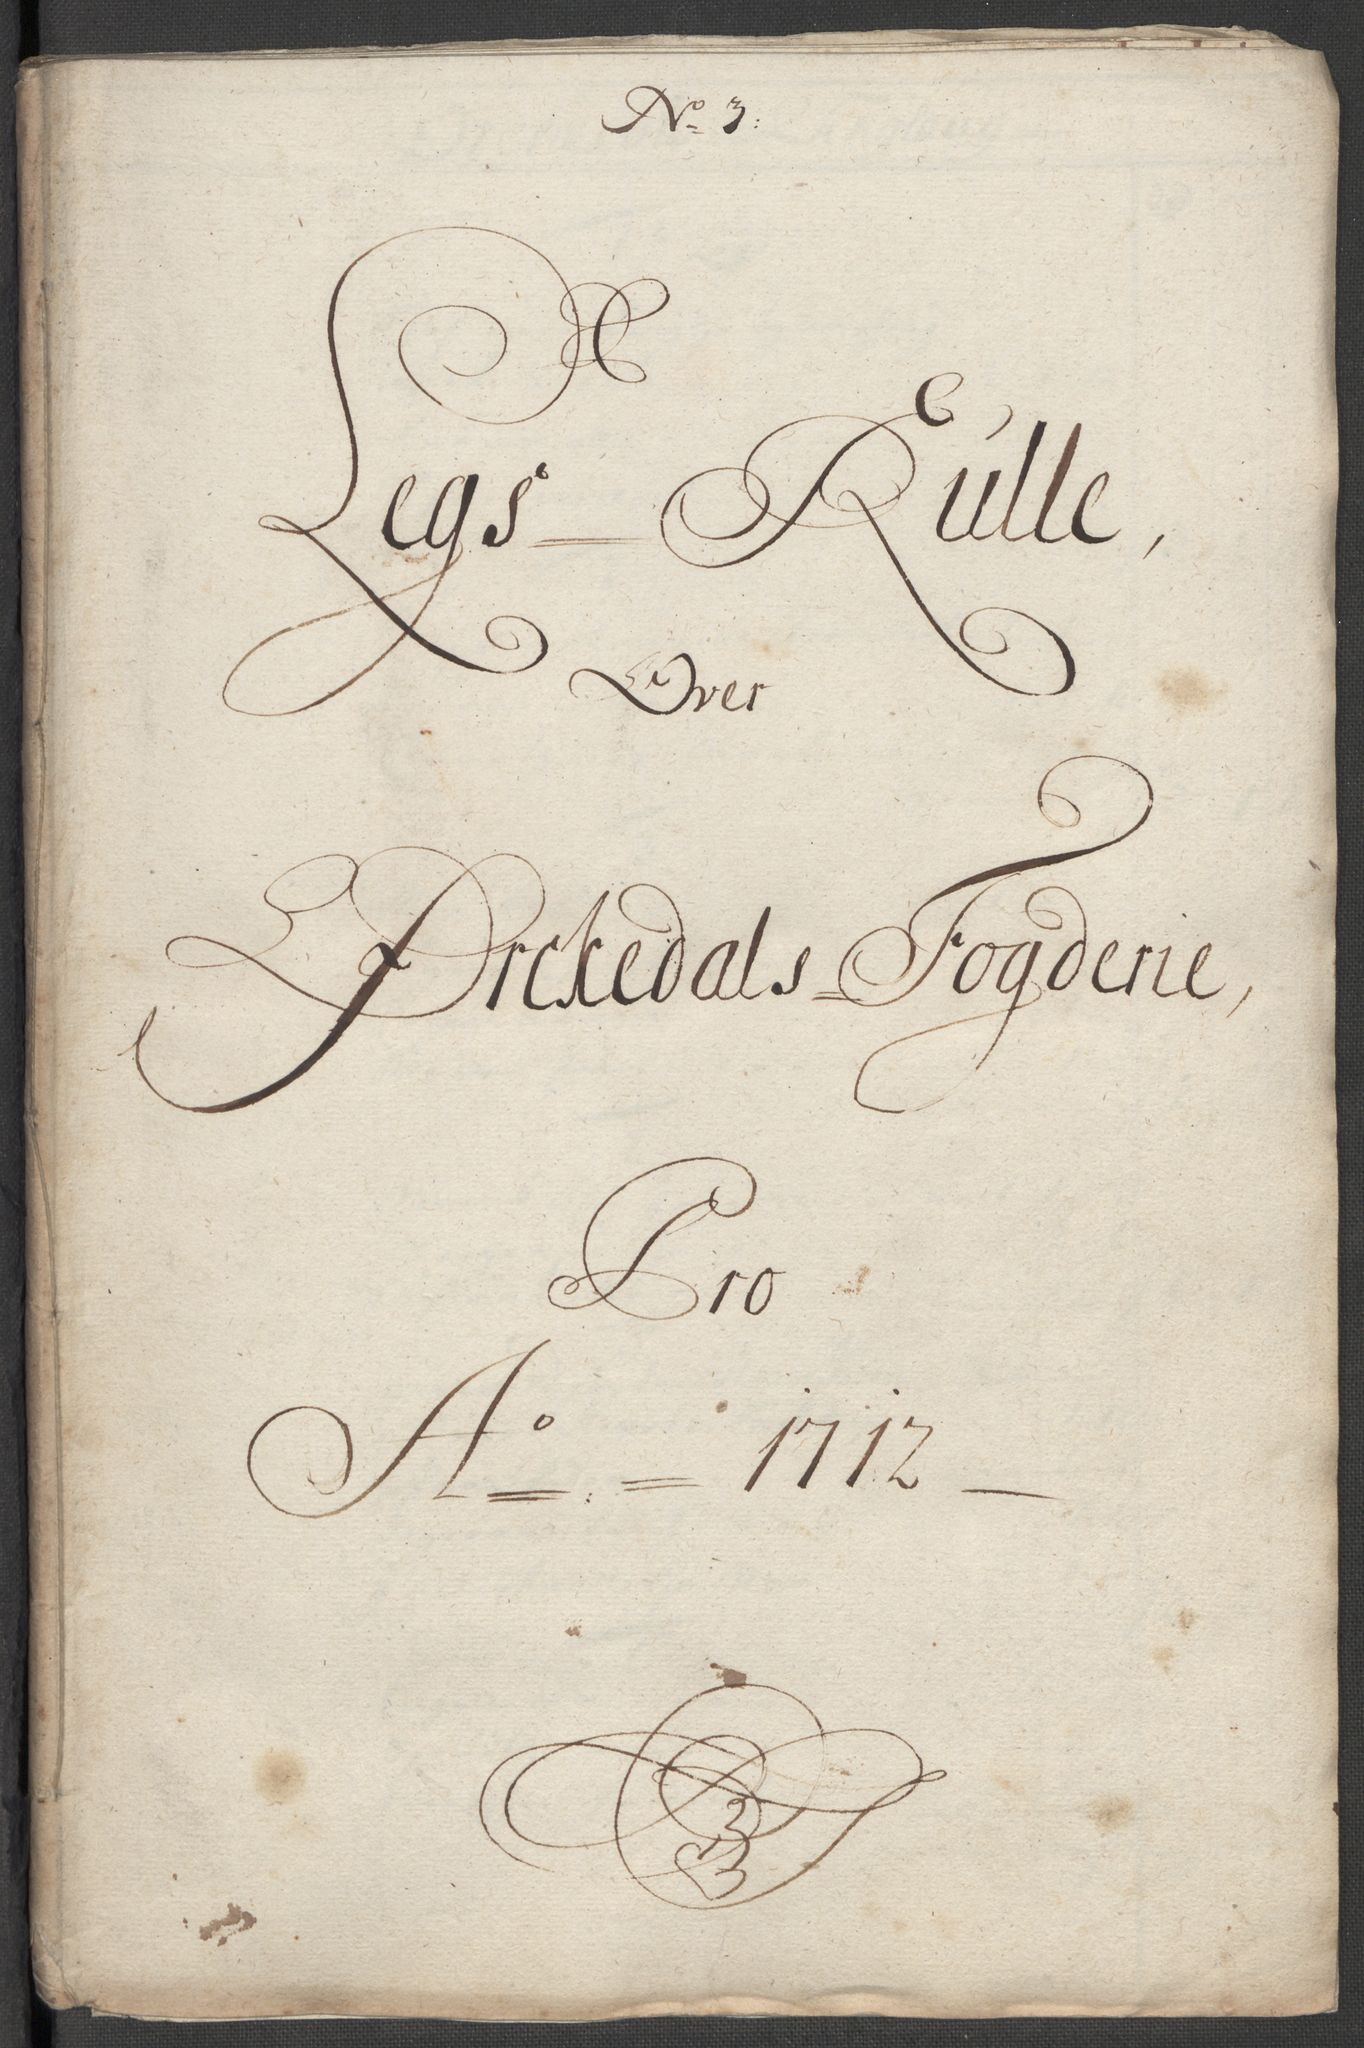 No 3:
Legs = Rúlle,
Over
Orckedals = Fogderie,
Pro
Ao = 1712